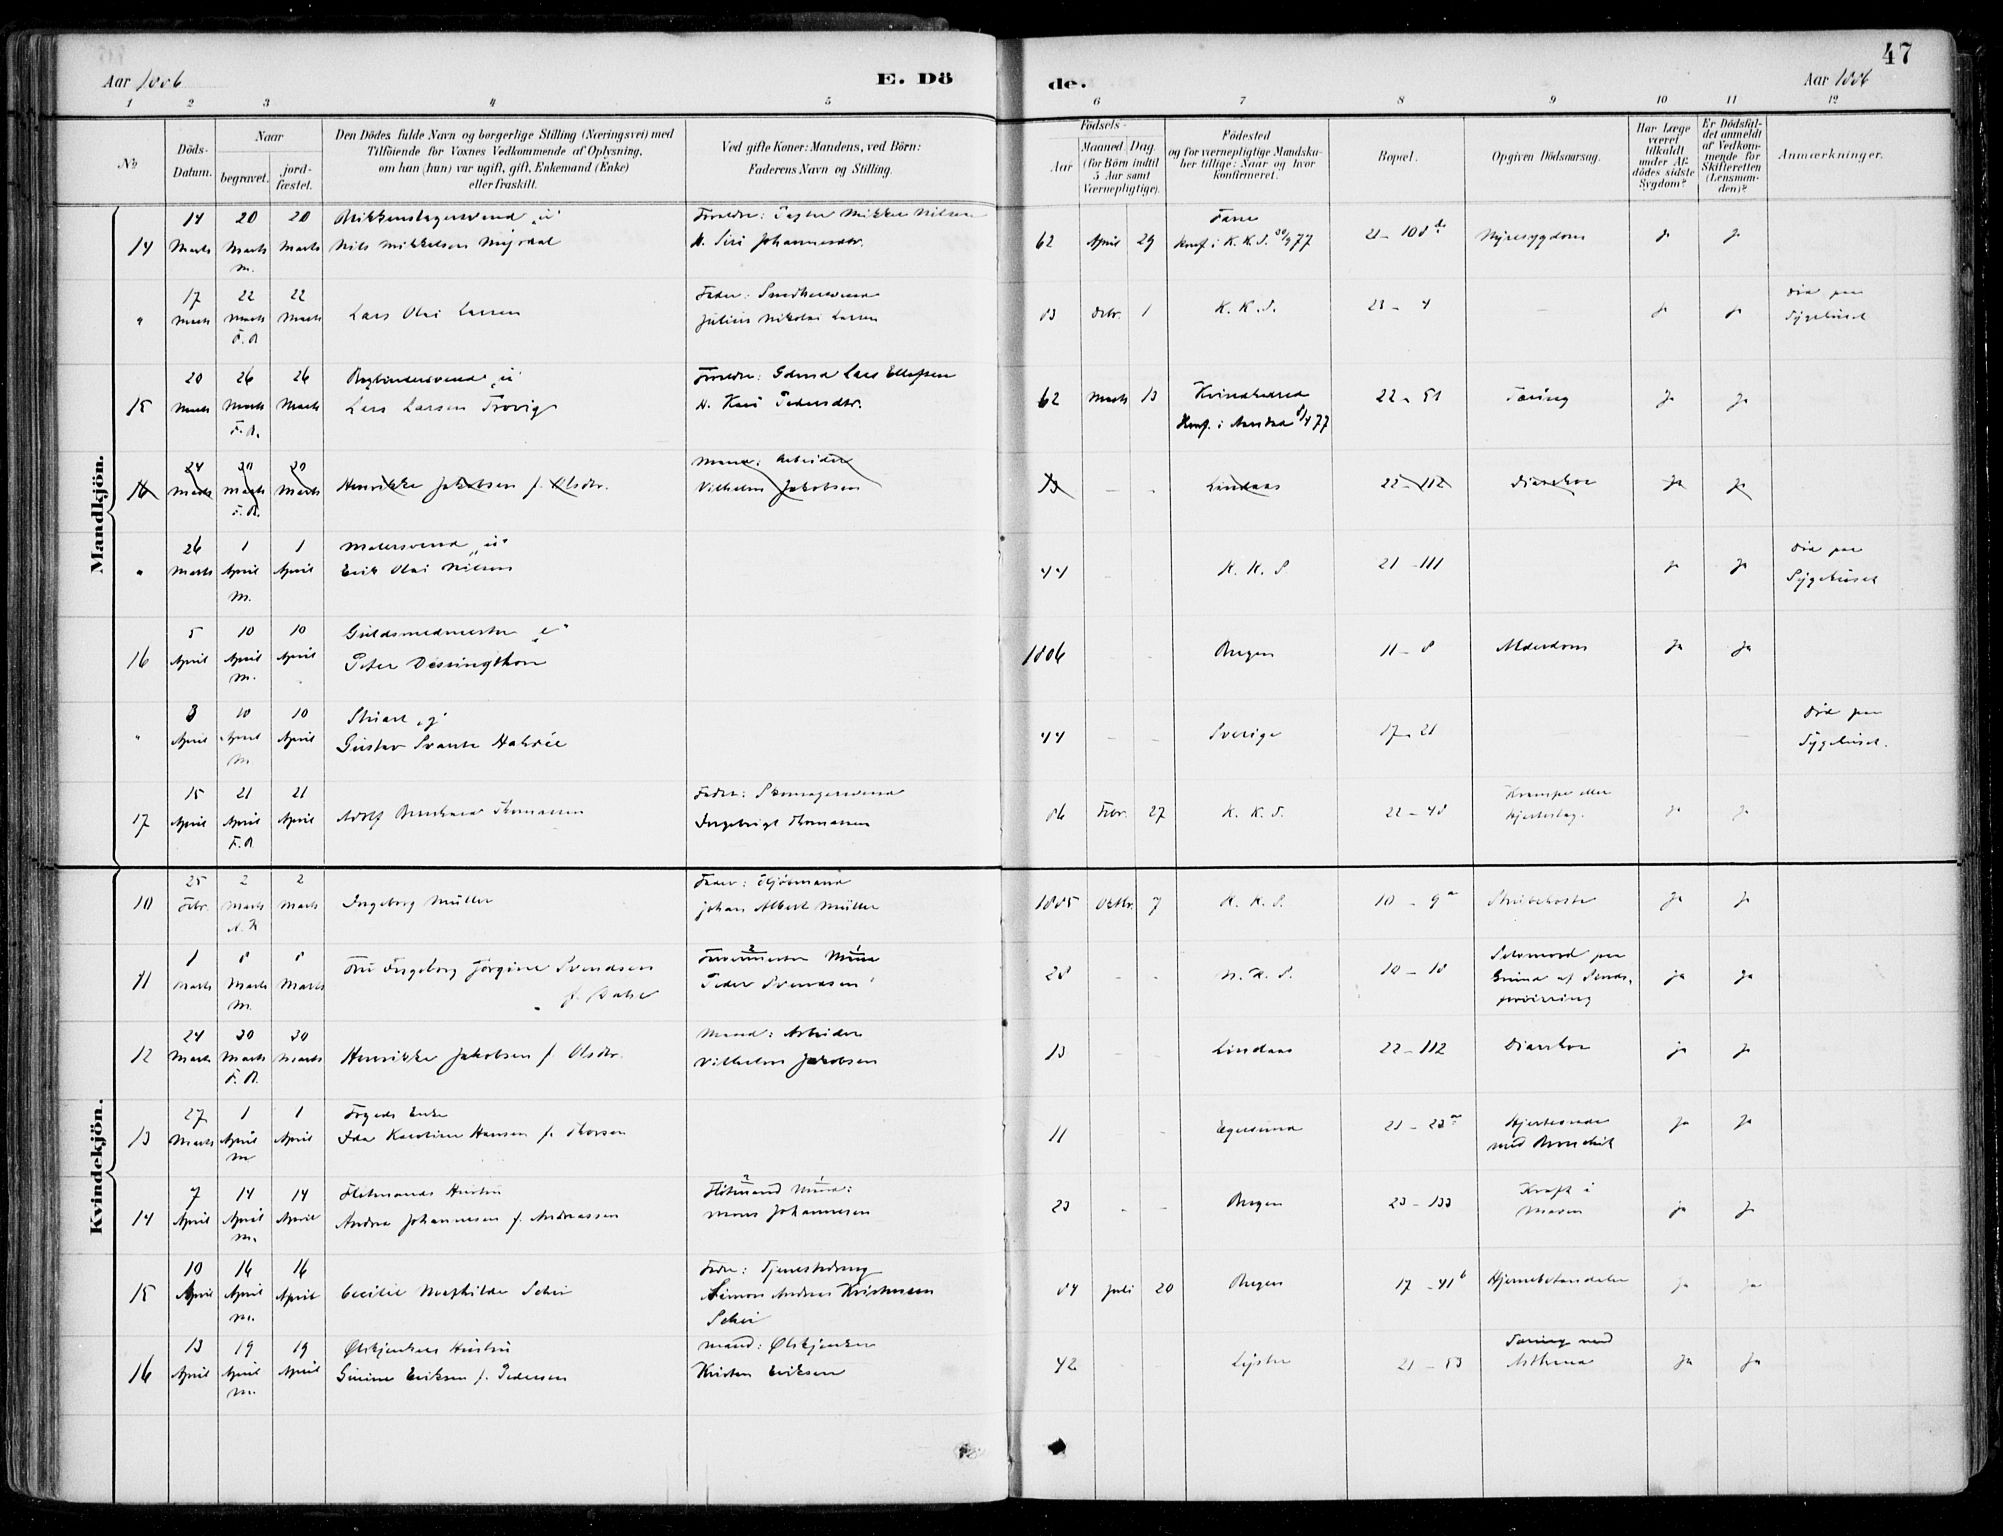 47
Aar 1886
E. Dö
de.
Aar 1886
1 2 3 4 5 6 7 8 9 10 11 12
No
Döds-
Datum.
Naar
begravet.
jord-
fæstet.
Den Dödes fulde Navn og borgerlige Stilling (Næringsvei) med
Tilföiende for Voxnes Vedkommende af Oplysning,
om han (hun) var ugift, gift, Enkemand (Enke)
eller fraskilt.
Ved gifte Koner: Mandens, ved Börn:
Faderens Navn og Stilling.
Födsels-
Aar
Maaned Dag
(for Börn indtil
5 Aar samt
Værnepligtige).
Födested
og for værnepligtige Mandska-
ber tillige: Naar og hvor
konfirmeret.
Bopæl.
Opgiven Dödsaarsag.
Har Læge
været
tilkaldt
under Af-
dödes sidste
Sygdom?
Er Dödsfal-
det anmeldt
af Vedkom-
mende for
Skifteretten
(Lensman-
den)?
Anmærkninger.
Mandkjön.
14 14 Marts 20 Marts M. 20 Marts Nils Mikkelsen Mijrdal H. Siri Johannesdtr. 62 April 29 Konf. i K. K. S. 30/9 77 21 - 108 Nyresygdom ja ja
" 17 Marts 22 Marts F.B. 22 Marts Lars Olai Larsen Fader: Smedsvend Julius Nikolai Larsen 83 Debr. 1 K. K. S. 23 - 4 - ja ja Död paa Sygehuset
15 20 Marts 26 Marts F.B. 26 Marts "u" Lars Larsen Trovig Forældre: Lars Ellefsen H. Kari Pedersdtr. 62 Marts 13 Kvindherred Konf. i 8/4 77 22 - 51 Tæring ja ja
16 24 Marts 30 Marts F.B. 30 Marts Henrikke Jakobsen f. Olsdtr. Mand: Arbeider Vilhelm Jakobsen 13 - - Lindaas 22 - 112 Diarrhoe ja ja
" 26 Marts 1 April M. 1 April Malersvend "u" Erik Olai Nilsen 44 - K. K. S 21 - 111 ja ja Död paa Sygehuset
16 5 April 10 April M. 10 April Guldsmedmester "e" Peter Dessingthon 1806 Bergen 11 - 8 Alderdom ja ja
" 3 April 10 April M. 10 April "g" Gustav Svante 44 - - Sverige 17 - 21 - - Död paa Sygehuset.
17 15 April 21 April F.B. 21 April Adolf Bernhard Thomassen Fader: Skomagersvend Ingebrigt Thomassen 86 Febr. 27 K. K. S. 22 - 48 Krampe eller Hjerteslag. ja ja
Kvindekjön.
10 25 Febr. 2 Marts 2 Marts Ingeborg Müller Fader: Johan Albert Müller 1885 Oktbr. 7 K. K. S. 10 - 9a Strubehoste ja ja
11 1 Marts 8 Marts M. 8 Marts Fru Ingeborg Jörgine Svendsen Peder Svendsen 28 - - N. K. S. 10 - 18 Selvmord paa Grund af Sinds- ja ja
12 24 Marts 30 Marts F.B. 30 Marts Henrikke Jakobsen f. Olsdtr. Mand: Arbeider Vilhelm Jakobsen 13 - - Lindaas 22 - 112 Diarrhoe ja ja
13 27 Marts 1 April M 1 April Fogeds Enke Ida Karoline Hansen f. Thorsen 11 - Egersund 21 - 23a Hjertesvede med Bronchit ja ja
14 7 April 14 April M. 14 April Flötmands Hustru Andrea Johannesen f. Andreassen Flötmand Mand: Mons Johannesen 23 - - Bergen 23 - 133 Kræft i Maven ja ja
15 10 April 16 April M. 16 April Cecilie Mathilde Schei Fader: Tjenestedreng Simon Andreas Kristensen Schei 84 Juli 20 Bergen 17 - 41b Hjernebetændelse ja ja
16 13 April 19 April M. 19 April Ölskjenkers Hustru Gurine Eriksen f. Pedersen Mand: Ölskjenker Kristen Eriksen 42 - - Lyster 21 - 53 Tæring med Asthma ja ja